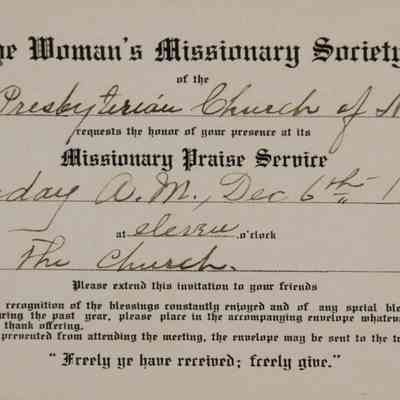 he Woman's Missionary Society
of the
Presbyterian Church of
requests the honor of your presence at its
Missionary Praise Service
day A.M., Dec 6th 1
at eleven o'clock
The Church.
Please extend this invitation to your friends
recognition of the blessings constantly enjoyed and of any special ble
uring the past year, please place in the accompanying envelope whateve
thank offering.
prevented from attending the meeting, the envelope may be sent to the tr
"Freely ye have received; freely give."